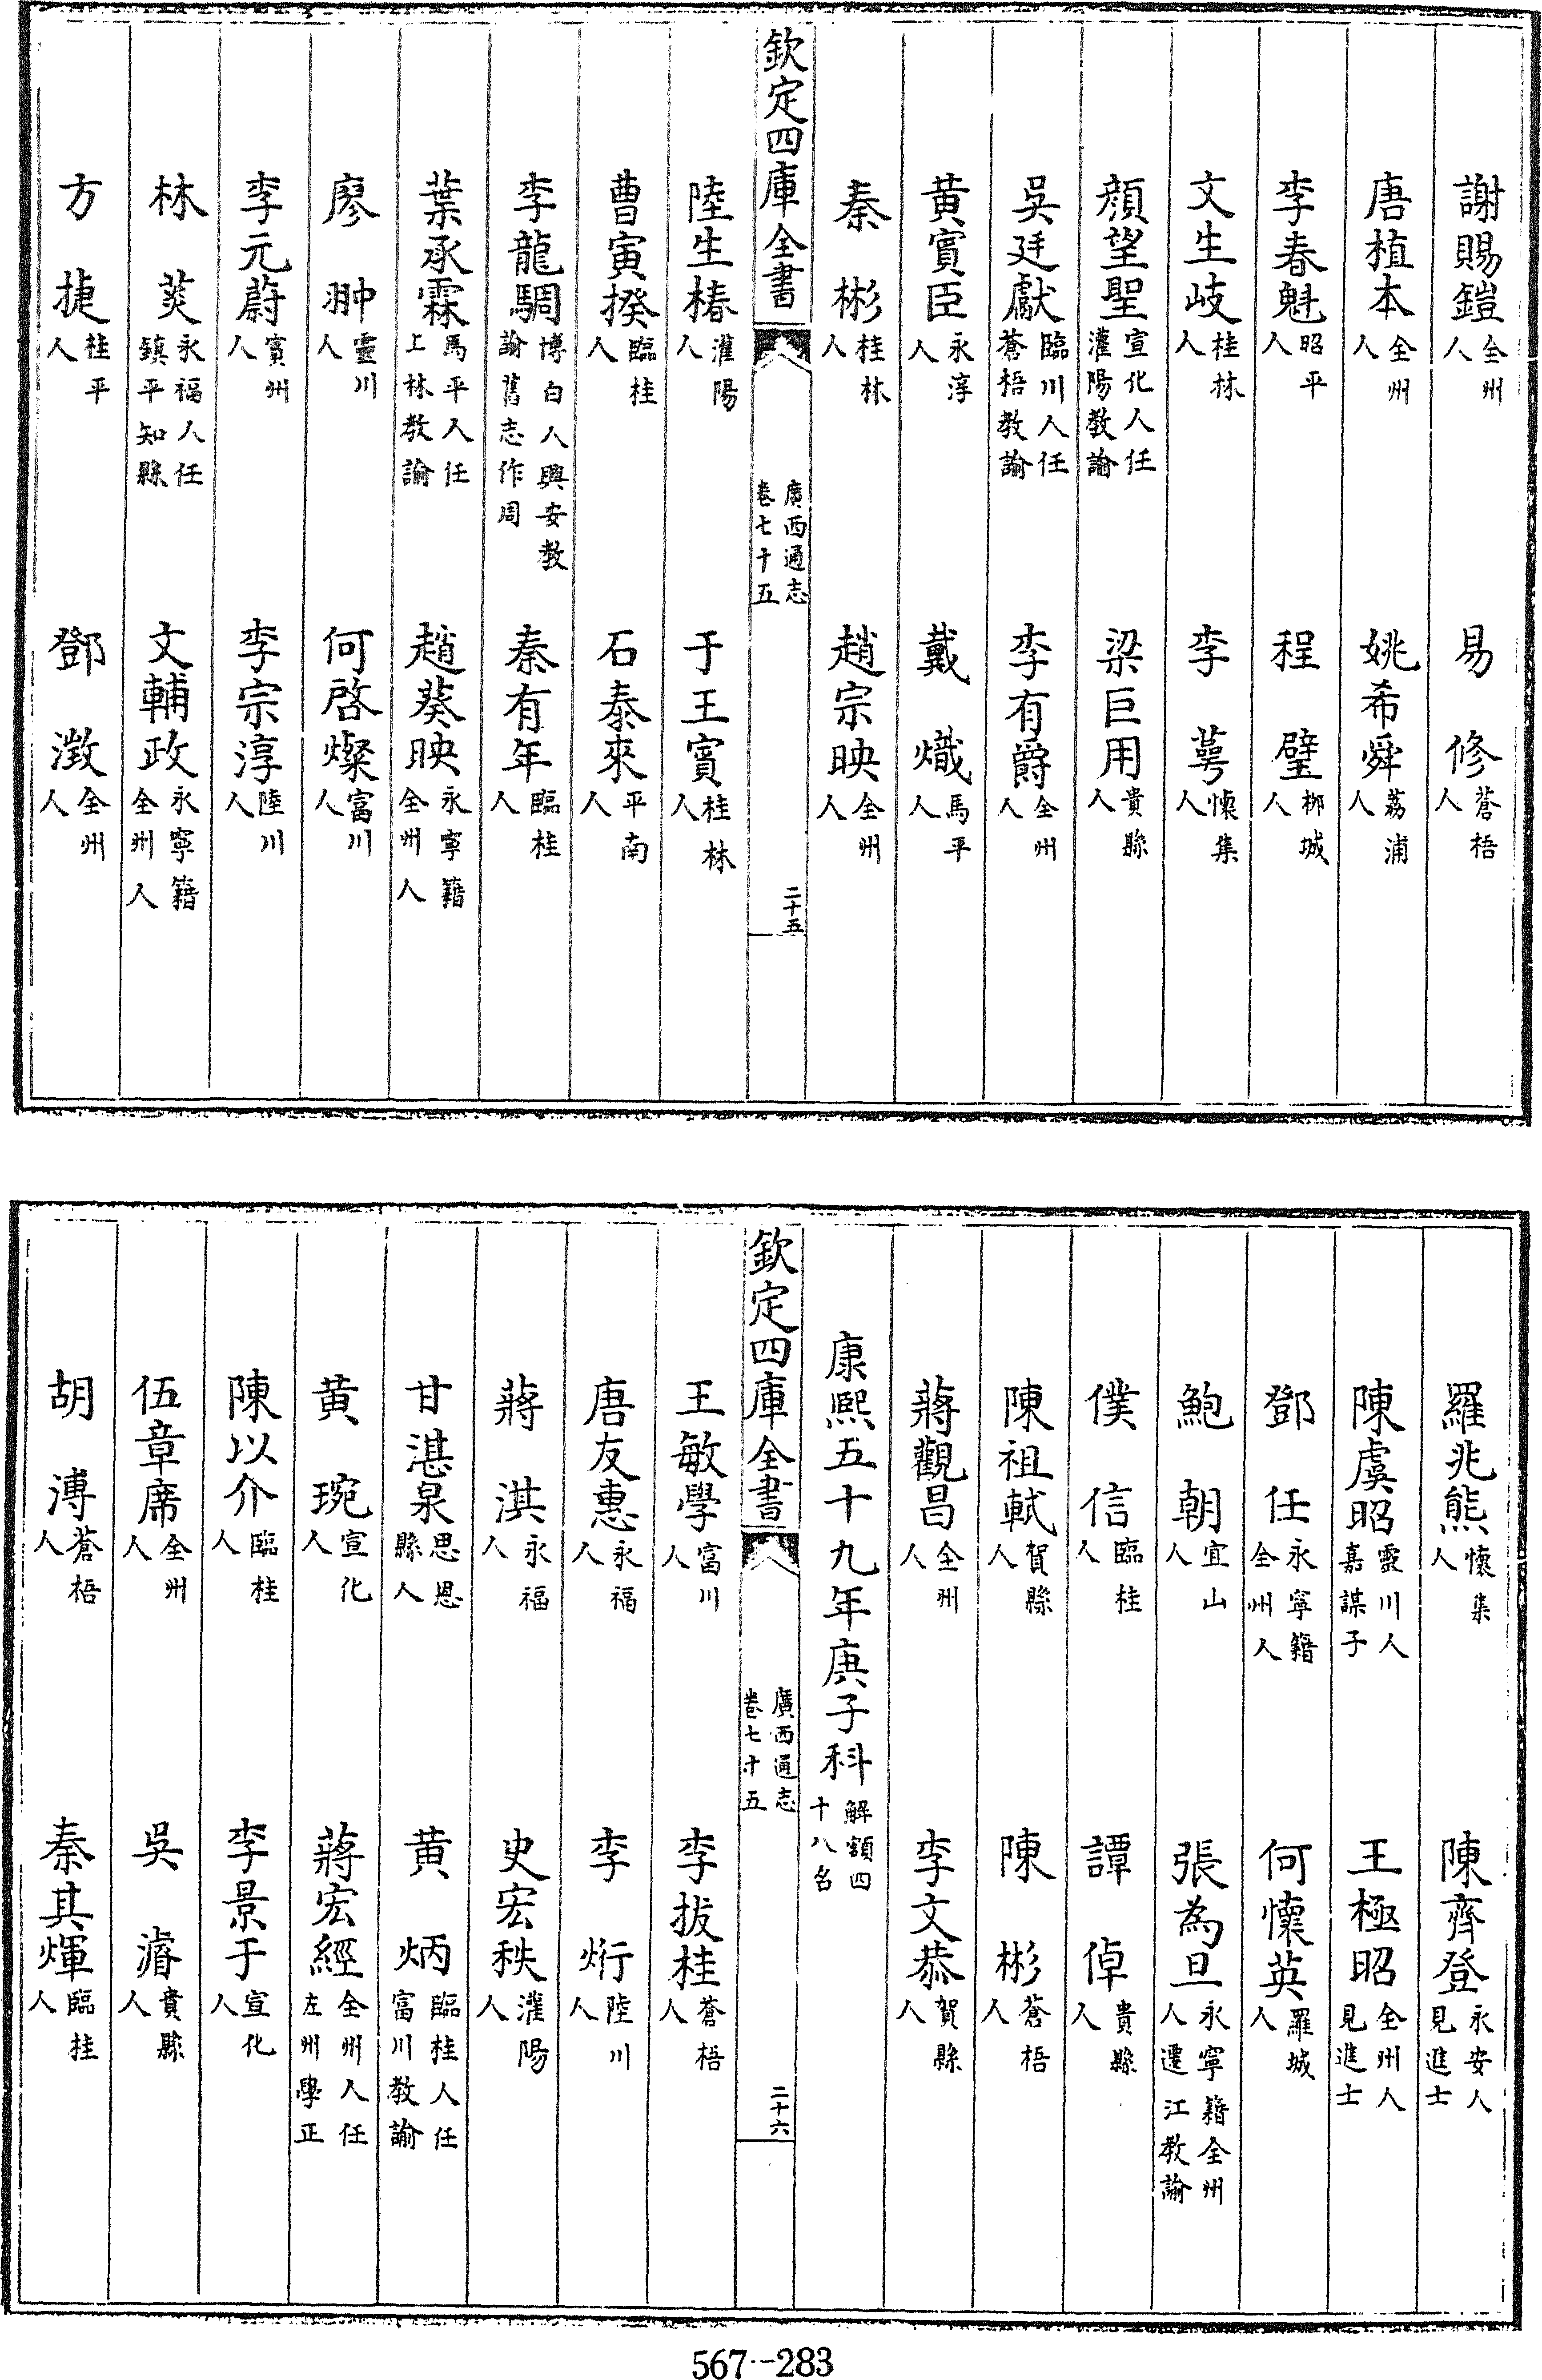 謝賜鎧全州人　易修蒼梧人
唐植本全州人　姚希舜荔浦人
李春魁昭平人　程璧柳城人
文生岐桂林人　李蕚懷集人
顔望聖宣化人任灌陽教諭　梁巨用貴縣人
吳廷獻臨川人任蒼梧教諭　李有爵全州人
黃賓臣永淳人　戴熾馬平人
秦彬桂林人　趙宗映全州人
欽定四庫全書　廣西通志卷七十五　二十五
陸生椿灌陽人　于王賓桂林人
曹寅揆臨桂人　石泰來平南人
李龍騆博白人興安教諭舊志作周　秦有年臨桂人
葉承霖馬平人任上林教諭　趙葵映永寧籍全州人
廖翀靈川人　何啓燦富川人
李元蔚賓州人　李宗淳陸川人
林焱永福人任鎮平知縣　文輔政永寧籍全州人
方捷桂平人　鄧澂全州人
羅兆熊懷集人　陳齊登永安人見進士
陳虞昭靈川人嘉謀子　王極昭全州人見進士
鄧任永寧籍全州人　何懷英羅城人
鮑朝宜山人　張為旦永寧籍全州人遷江教諭
僕信臨桂人　譚倬貴縣人
陳祖軾賀縣人　陳彬蒼梧人
蔣觀昌全州人　李文恭賀縣人
康熙五十九年庚子科解額四十八名
欽定四庫全書　廣西通志卷七十五　二十六
王敏學富川人　李拔桂蒼梧人
唐友惠永福人　李烆陸川人
蔣淇永福人　史宏秩灌陽人
甘湛泉思恩縣人　黃炳臨桂人任富川教諭
黃琬宣化人　蔣宏經全州人任左州學正
陳以介臨桂人　李景于宣化人
伍章席全州人　吳濬貴縣人
胡溥蒼梧人　秦其煇臨桂人
567-283